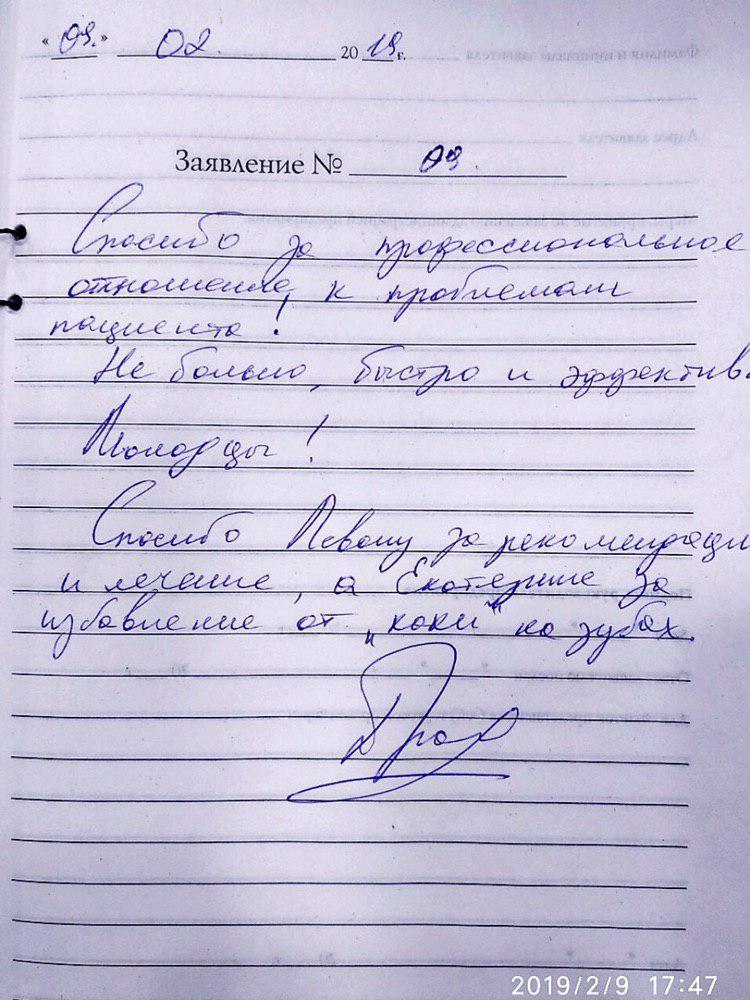 «09.» 02 2019г.
Заявление № 09.
Спасибо за профессиональное
отношение к проблемам
пациента!
Не больно, быстро и эффектив
Молодцы!
Спасибо Левону за рекомендаци
и лечение, а Екатерине за
избавление от „каки" на зубах.
2019/2/9 17:47